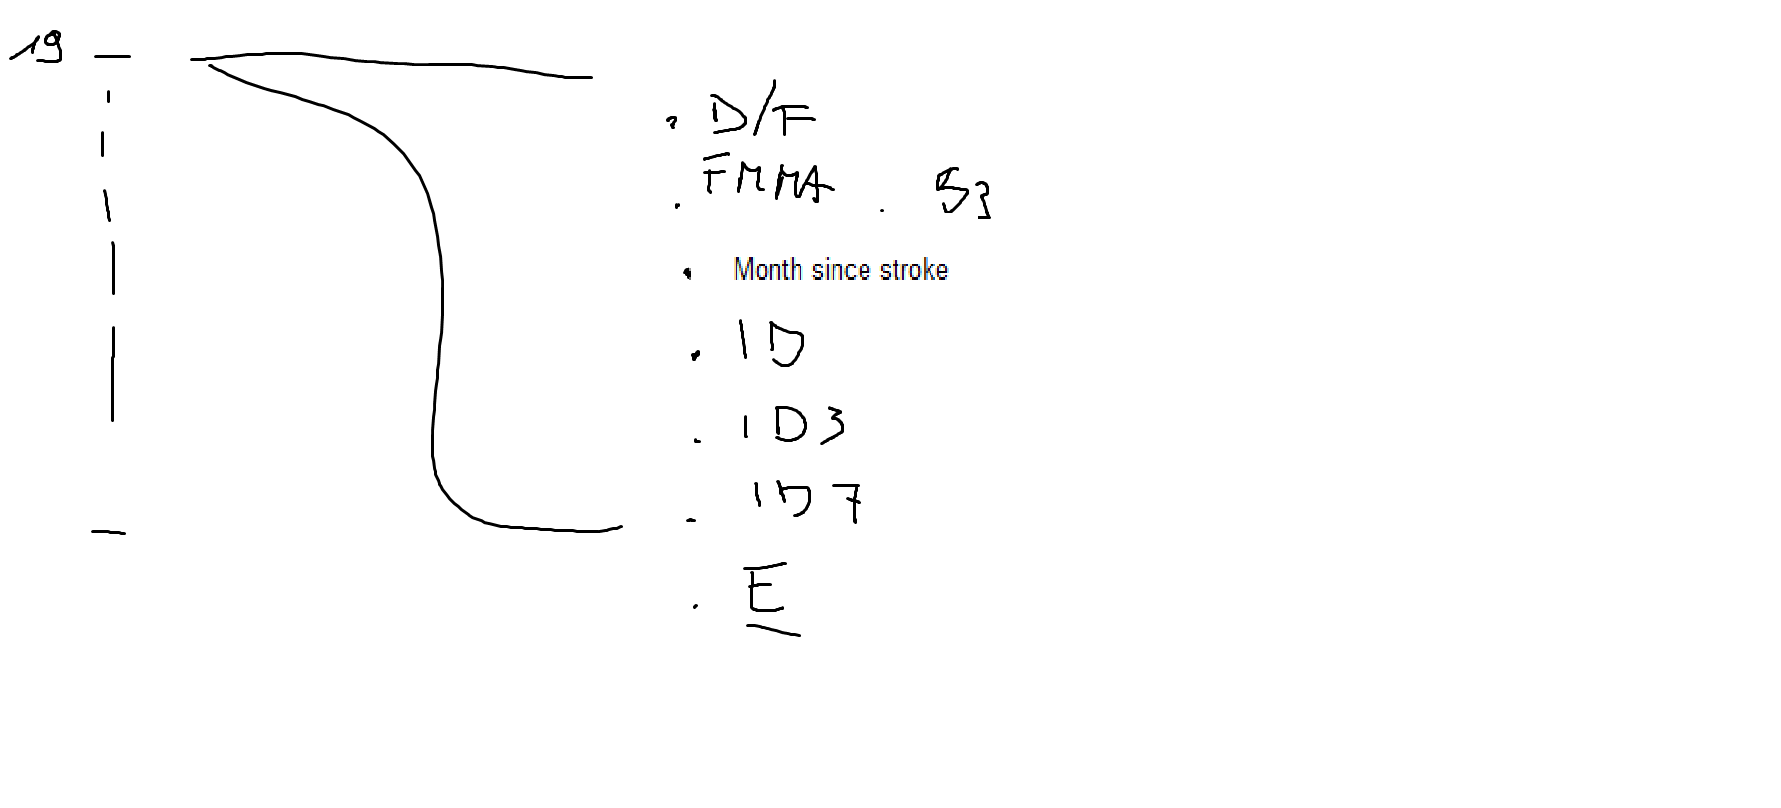 19
D/F
FMMA . 53
Month since stroke
ID
ID3
ID7
E